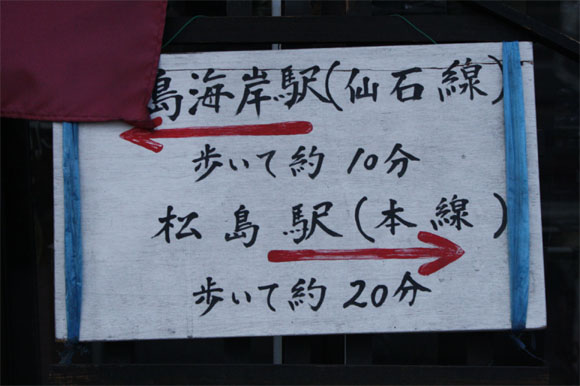 島海岸駅(仙石線)
歩いて約 10分
松島駅(本線)
歩いて約 20分